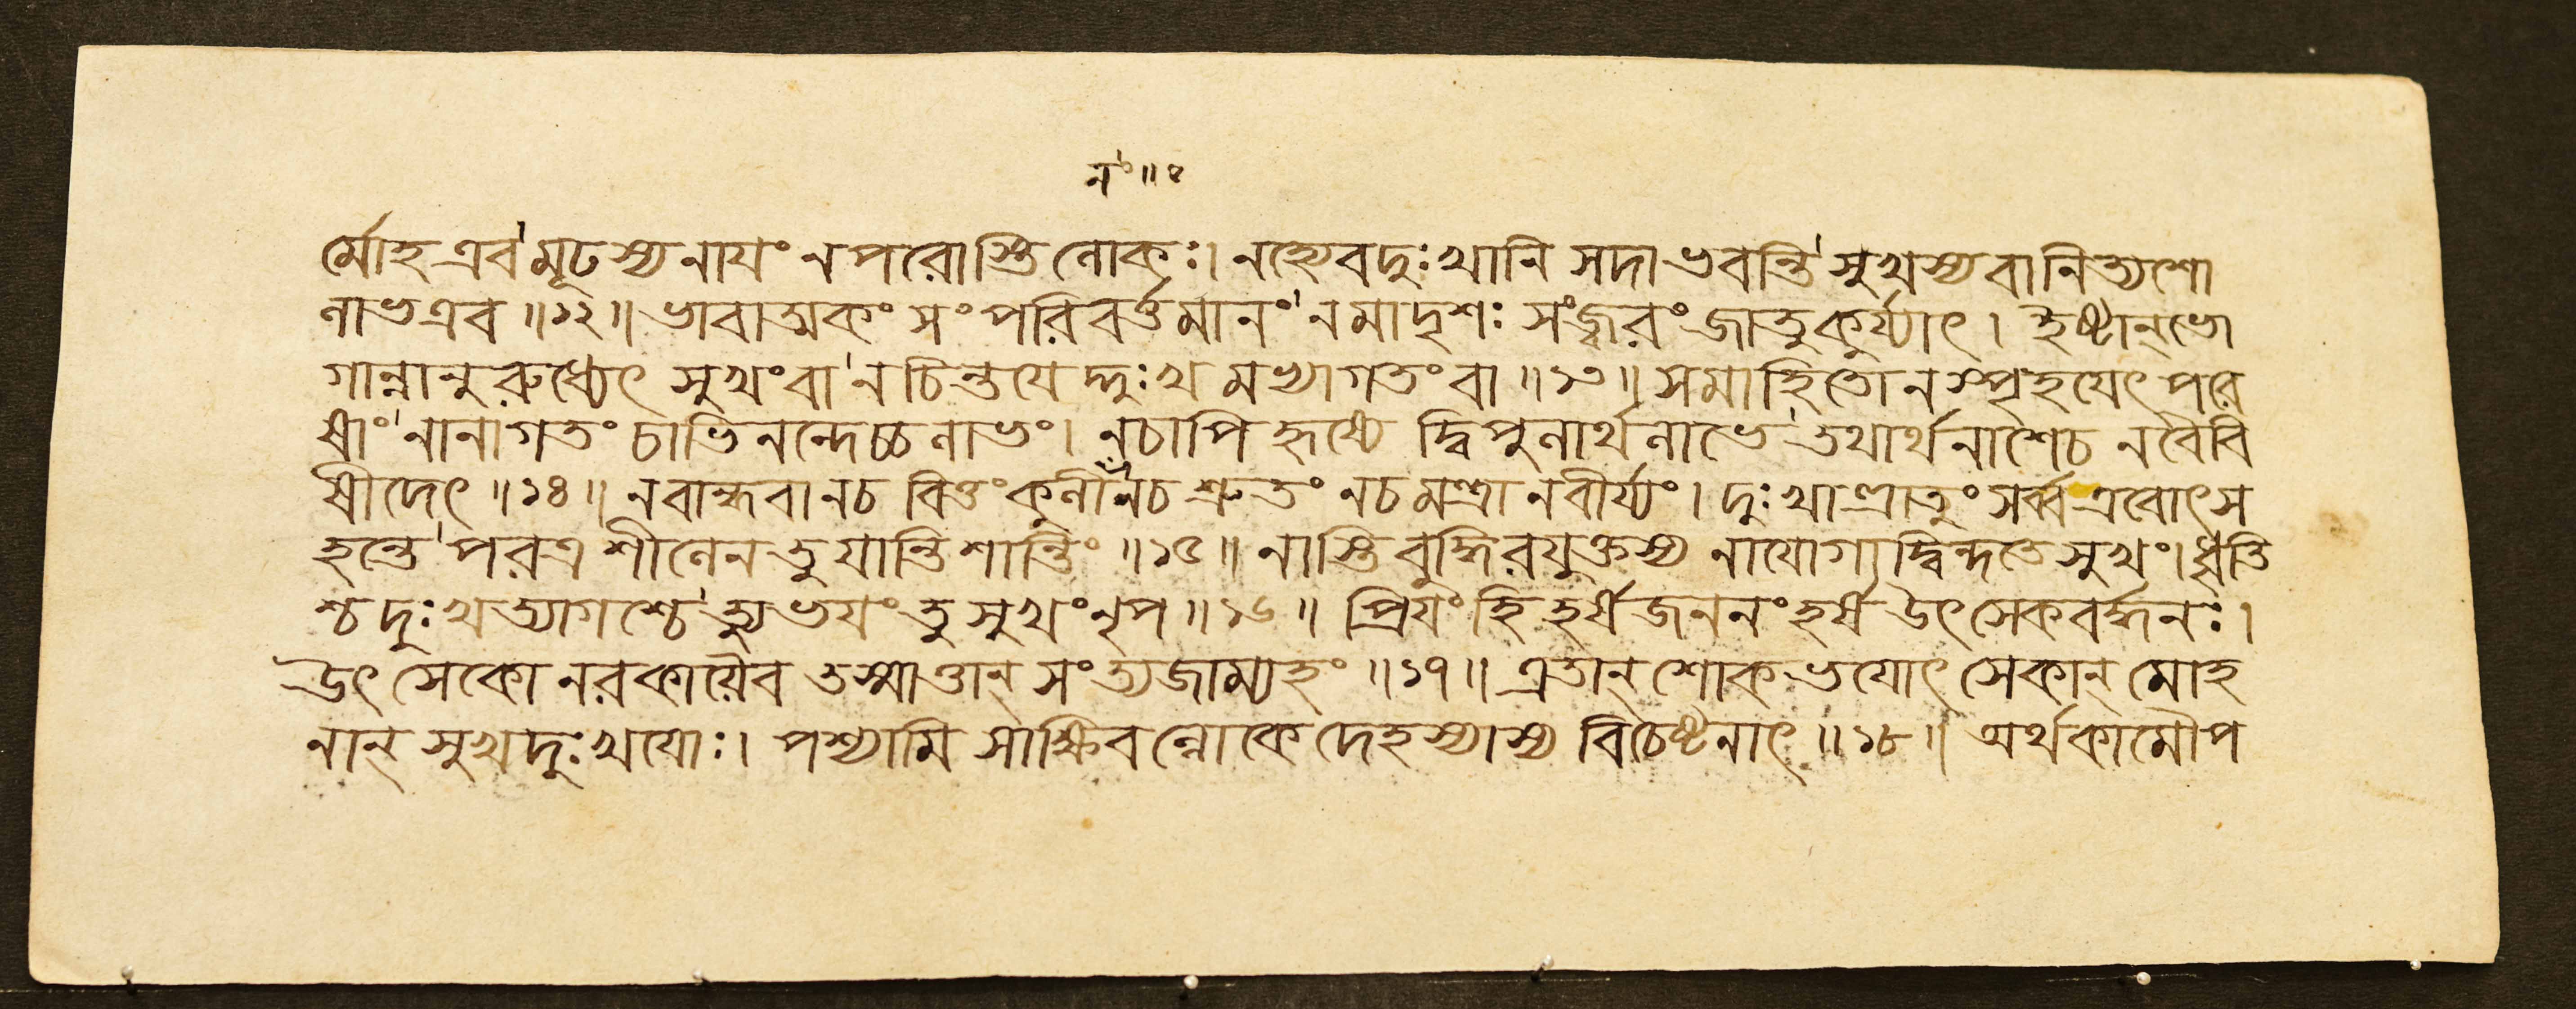 নং ॥ ৪
র্মোহ এব মূঢস্য নাযং ন পরোস্তি লোকঃ। নহ্যেব দুঃখানি সদা ভবন্তি সুখস্য বা নিত্যশো
লাভ এব ॥১২॥ ভাবাত্মকং সংপরিবর্ত্তমানং ন মাদৃশঃ সংজ্বরং জাতু কুর্য্যাৎ। ইষ্টান্ ভো
গান্নানুরুধ্যেৎ সুখং বা ন চিন্তযেদ্দুঃখমভ্যাগতং বা ॥১৩॥ সমাহিতো ন স্পৃহযেৎ পরে
ষাং নানাগতং চাভিনন্দেচ্চ লাভং। ন চাপি হৃষ্যে দ্বিপুলার্থলাভে তথার্থনাশে চ ন বৈ বি
ষীদেৎ ॥১৪॥ ন বান্ধবা ন চ বিত্তং কুলীনং ন চ শ্রুতং ন চ মন্ত্রা ন বীর্য্যং। দুঃখাত্ত্রাতুং সর্ব্ব এবোৎস
হন্তে পরত্র শীলেন তু যান্তি শান্তিং ॥১৫॥ নাস্তি বুদ্ধিরযুক্তস্য নাযোগাদ্বিন্দতে সুখং। ধৃতি
শ্চ দুঃখত্যাগশ্চেত্যুভযং তু সুখং নৃপ ॥১৬॥ প্রিযং হি হর্ষজননং হর্ষ উৎসেকবর্দ্ধনঃ।
উৎসেকো নরকাযৈব তস্মাত্তান্ সংত্যজাম্যহং ॥১৭॥ এতান্ শোকভযোৎসেকান্ মোহ
নান্ সুখদুঃখযোঃ। পশ্যামি সাক্ষিবল্লোকে দেহস্যাস্য বিচেষ্টনাৎ ॥১৮॥ অর্থকামৌ প